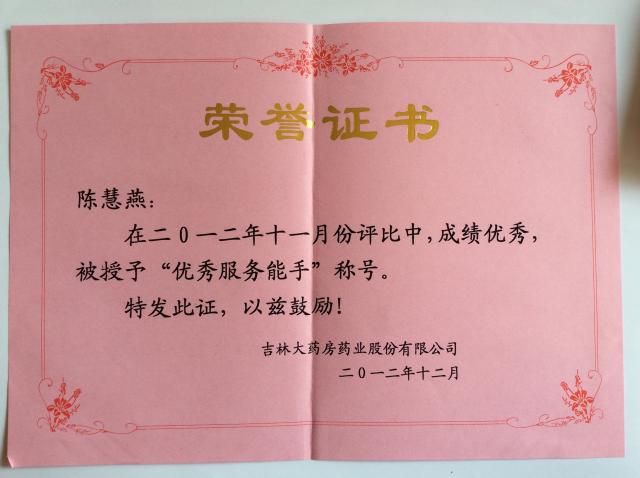 荣誉证书
陈慧燕：
在二0一二年十一月份评比中，成绩优秀，
被授予“优秀服务能手”称号。
特发此证，以兹鼓励！
吉林大药房药业股份有限公司
二0一二年十二月